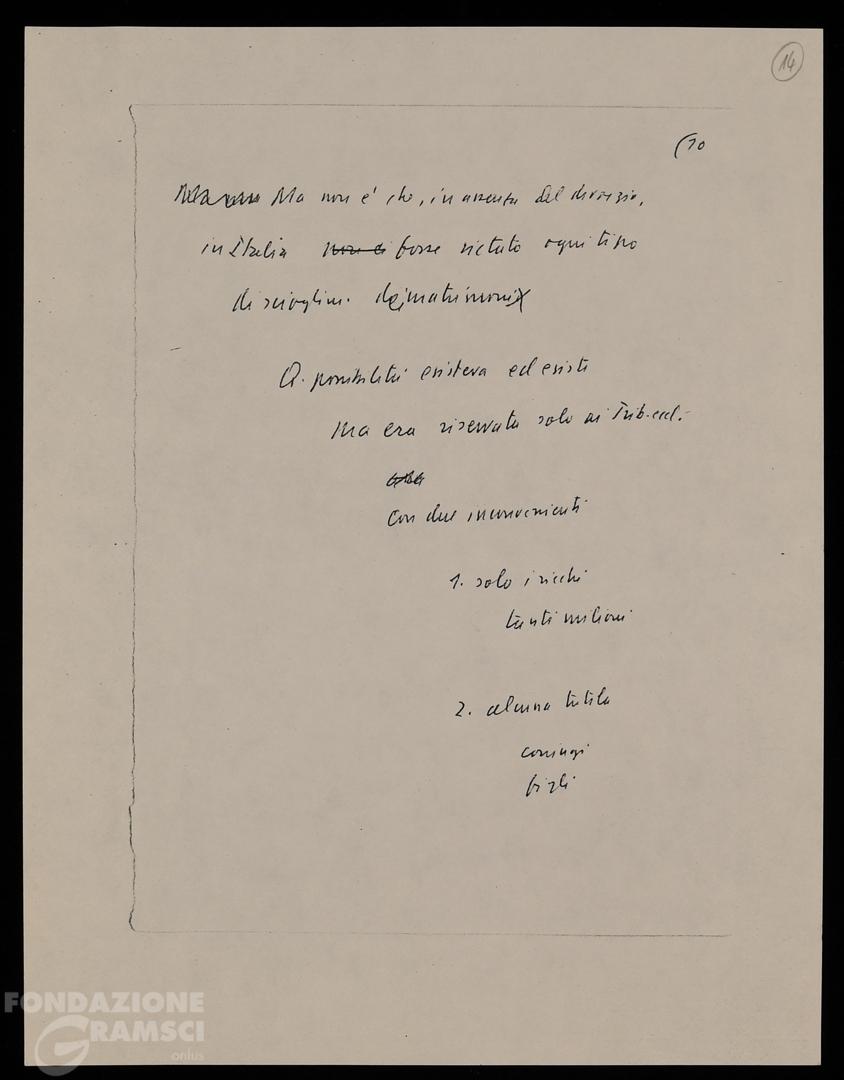 14
(10
Ma non è che, in assenza del divorzio,
in Italia non ci fosse vietato ogni tipo
di scioglim. dei matrimoni
Q. possibilità esisteva ed esiste
Ma era riservata solo ai Trib. eccl.
con due inconvenienti
1. solo i ricchi
tanti milioni
2. alcuna tutela
coniugi
figli
FONDAZIONE
GRAMSCI
onlus